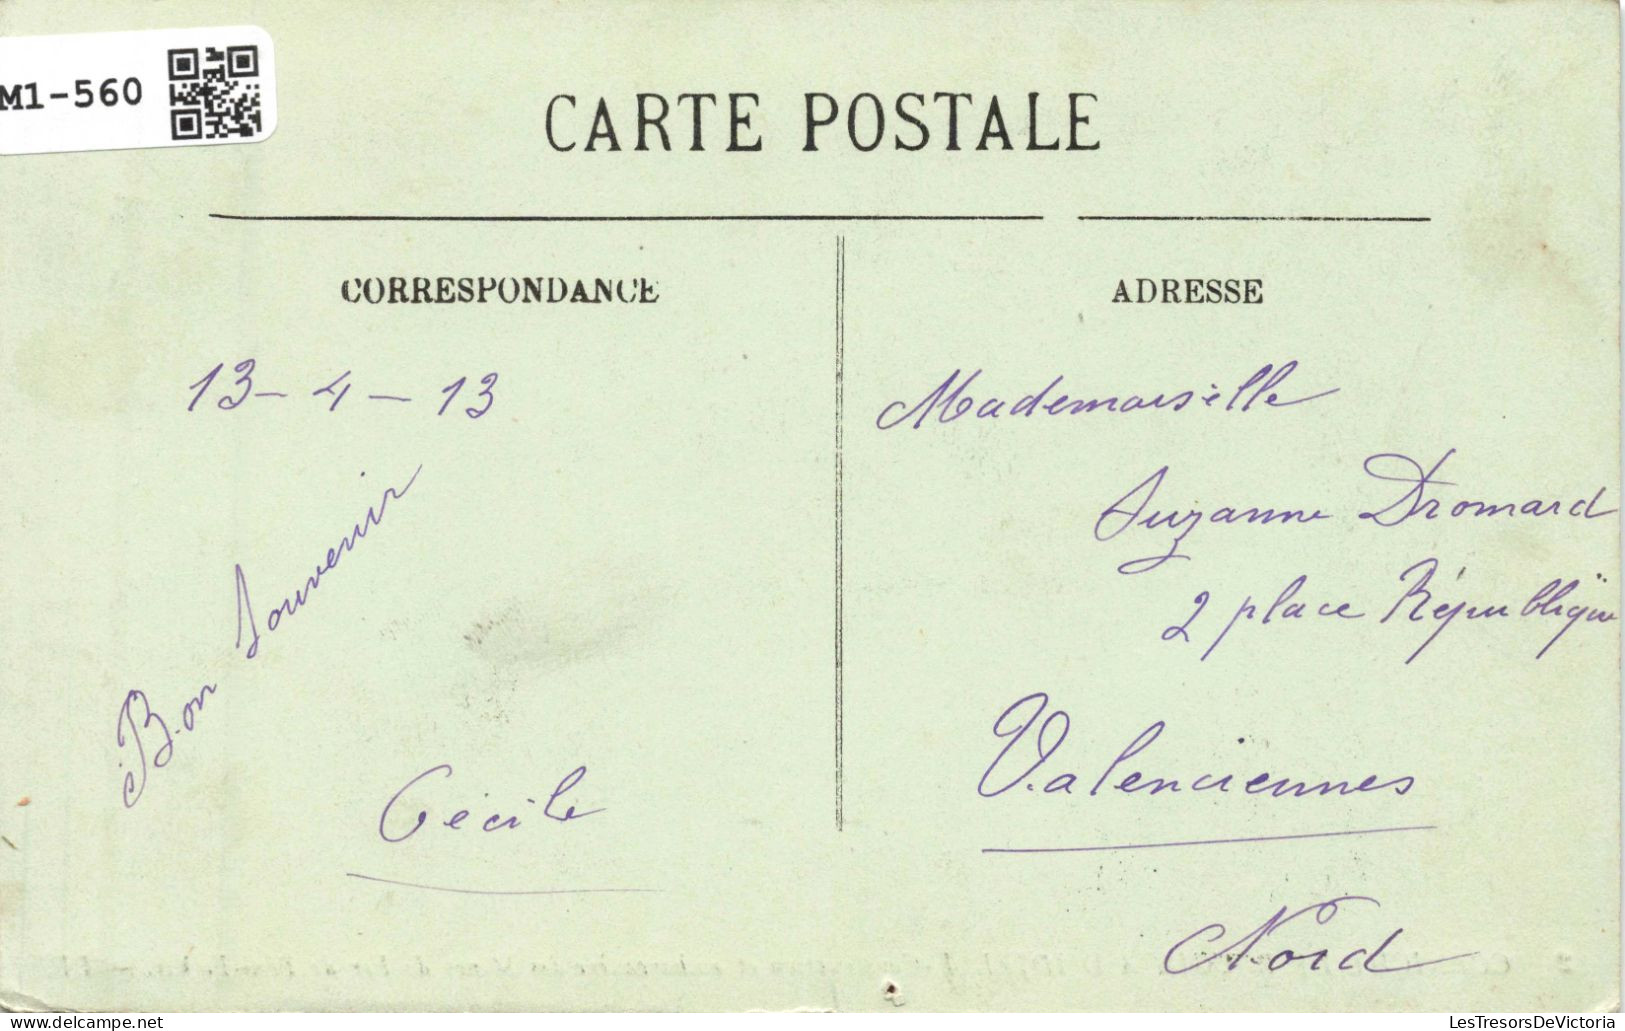 M1-560
CARTE POSTALE
CORRESPONDANCE
ADRESSE
13-4-13
Bon Souvenir
Cécile
Mademoiselle
Suzanne Dromard
2 place République
Valenciennes
Nord
LesTresorsDeVictoria